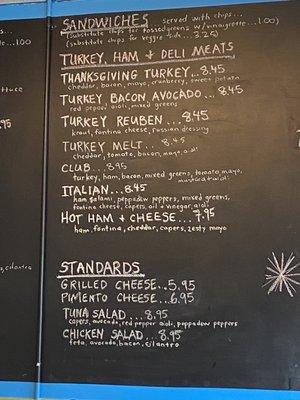 SANDWICHES Served with chips...
(substitute chips for tossed greens w/vinaigrette...1.00)
(substitute chips for veggie side...3.25)
TURKEY, HAM & DELI MEATS
THANKSGIVING TURKEY...8.45
cheddar, bacon, mayo, cranberry, sweet potato
TURKEY, BACON, AVOCADO...8.45
red pepper aioli, mixed greens
TURKEY REUBEN...8.45
kraut, fontina cheese, russian dressing
TURKEY MELT...8.45
cheddar, tomato, bacon, mayo, aioli
CLUB...8.95
turkey, ham, bacon, mixed greens, tomato, mayo,
mustard aioli
ITALIAN...8.45
ham, salami, peppadew peppers, mixed greens,
fontina cheese, capers, oil + vinegar, aioli
HOT HAM & CHEESE...7.95
ham, fontina, cheddar, capers, zesty mayo
STANDARDS
GRILLED CHEESE...5.95
PIMENTO CHEESE...6.95
TUNA SALAD...8.95
capers, avocado, red pepper aioli, peppadew peppers
CHICKEN SALAD...8.95
feta, avocado, bacon, cilantro
1.00
.95
cilantro